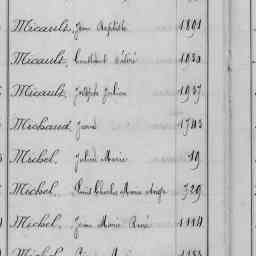 Micault, Jean Baptiste 1891
Micault, Constant Désiré 1030
Micault, Joseph Julien 1937
Michaud, 1703
Michel, Julien Marie 19
Michel, Louis Charles Marie Ange 729
Michel, Jean Marie René 1114
Michel,